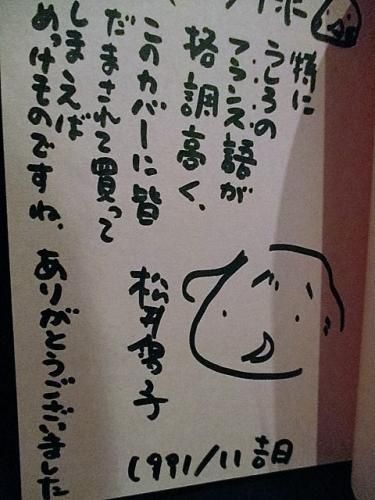 特に
うしろの
フランス語が
格調高く、
このカバーに皆
だまされて買って
しまえば
めっけものですね。ありがとうございました
松井雪子
1991/11 吉日